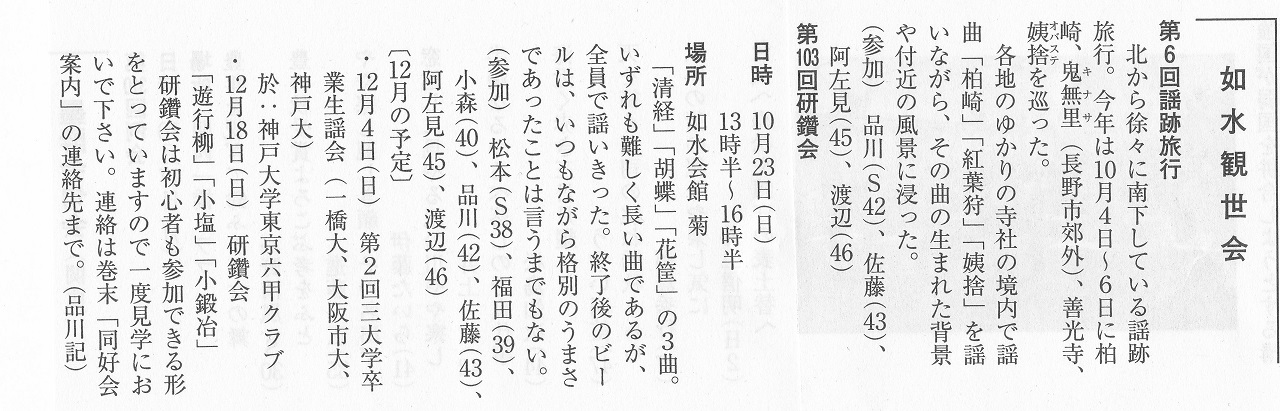 如水観世会
第6回謡跡旅行
北から徐々に南下している謡跡
旅行。今年は10月4日～6日に柏
崎、鬼無里（長野市郊外）、善光寺、
キナサ
姨捨を巡った。
オバステ
各地のゆかりの寺社の境内で謡
曲「柏崎」「紅葉狩」「姨捨」を謡
いながら、その曲の生まれた背景
や付近の風景に浸った。
（参加）　品川（S42）、佐藤（43）、
阿左見（45）、渡辺（46）
第103回研鑽会
日時　10月23日（日）
13時半～16時半
場所　如水会館　菊
「清経」「胡蝶」「花筐」の3曲。
いずれも難しく長い曲であるが、
全員で謡いきった。終了後のビー
ルは、いつもながら格別のうまさ
であったことは言うまでもない。
（参加）松本（S38）、福田（39）、
小森（40）、品川（42）、佐藤（43）、
阿左見（45）、渡辺（46）
〔12月の予定〕
・12月4日（日）　第2回三大学卒
業生謡会　（一橋大、大阪市大、
神戸大）
於：神戸大学東京六甲クラブ
・12月18日（日）　研鑽会
「遊行柳」「小塩」「小鍛冶」
研鑽会は初心者も参加できる形
をとっていますので一度見学にお
いで下さい。連絡は巻末「同好会
案内」の連絡先まで。（品川記）